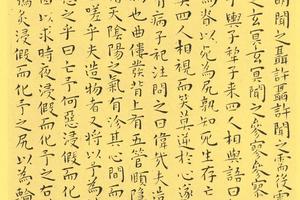 明聞之聶許聶許聞之需役需
之玄冥玄冥聞之參寥參寥
子輿子犁子來四人相與語曰
為脊以死為尻孰知死生存亡
矣四人相視而笑莫逆於心遂
有病子祀往問之曰偉哉夫造
也曲僂發背上有五管頤隱
指天陰陽之氣有沴其心閒而
嗟乎夫造物者又將以予為
惡之乎曰亡予何惡浸假而化
因以求時夜浸假而化予
炙浸假而化予之尻以為輪